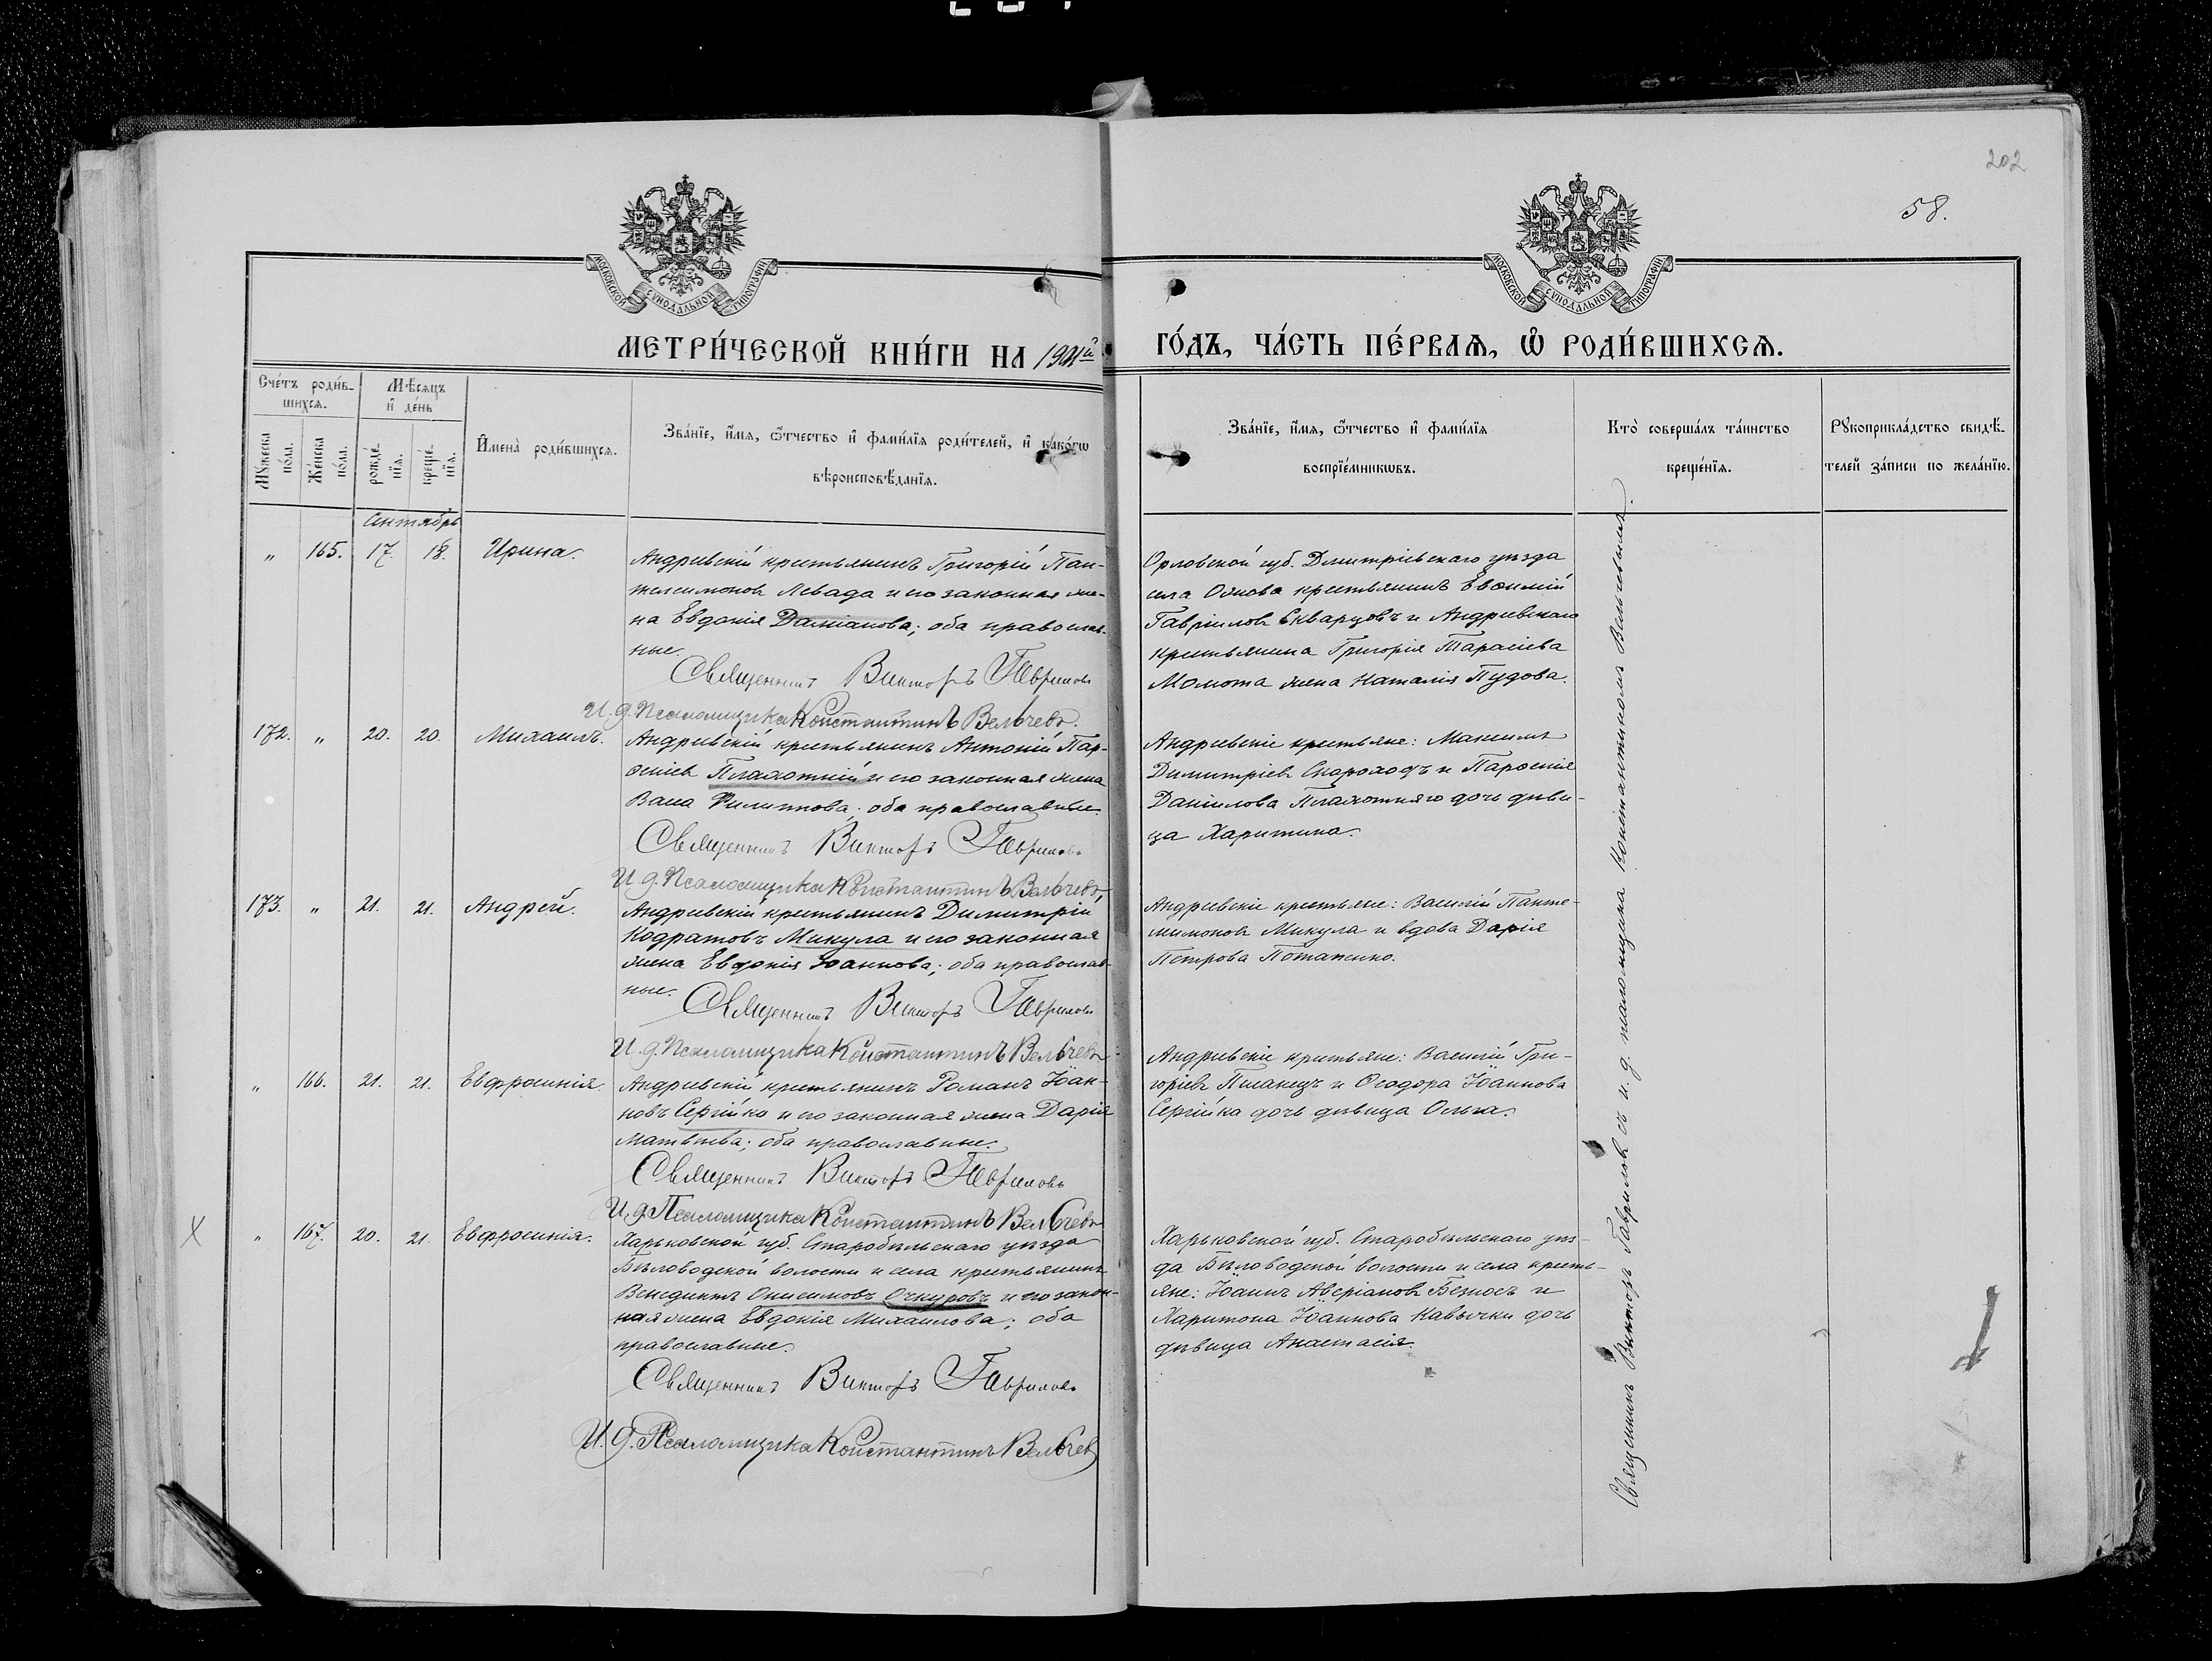 202
58.
МОСКОВСКОЙ СУНОДАЛЬНОЙ ТИПОГРАФІИ
МОСКОВСКОЙ СУНОДАЛЬНОЙ ТИПОГРАФІИ
МЕТРИ́ЧЕСКОЙ КНИ́ГИ НА
ГО́ДЪ, ЧА́СТЬ ПЕ́РВАЯ, Ѡ РОДИ́ВШИХСЯ.
Сче́тъ роди́в-
шихся.
Мѣ́сяцъ
и де́нь
Му́жеска
по́ла.
Же́нска
по́ла.
рожде́-
нія.
креще́-
нія.
Имена̀ роди́вшихся.
Зва́ніе, и́мя, ѻ́тчество и фами́лія роди́телей, и како́гѡ
вѣроисповѣ́данія.
Зва́ніе, и́мя, ѻ́тчество и фами́лія
воспріе́мникѡвъ.
Кто̀ соверша́лъ та́инство
креще́нія.
Рукоприкла́дство свидѣ́-
телей за́писи по жела́нію.
Сентябрь
„ 165. 17. 18. Ирина.
Андреевскій крестьянинъ Григорій Пан-
телеимоновъ Левада и его законная же-
на Евдокія Даміанова; оба православ-
ные.
Священникъ Викторъ Гавриловъ
И. д. Псаломщика Константинъ Вельчевъ.
Орловской губ. Дмитріевскаго уѣзда
села крестьянинъ Евѳимій
Гавріиловъ Скварцовъ и Андреевскаго
крестьянина Григорія Тарасіева
Момота жена Наталія Пудова.
172. „ 20. 20. Михаилъ.
Андреевскій крестьянинъ Антоній Пар-
ѳеніевъ Плахотній и его законная жена
Васса Филиппова; оба православные.
Священникъ Викторъ Гавриловъ
И. д. Псаломщика Константинъ Вельчевъ
Андреевскіе крестьяне: Максимъ
Димитріевъ Скороходъ и Парѳенія
Даніилова Плахотняго дочь дѣви-
ца Харитина.
173. „ 21. 21. Андрей.
Андреевскій крестьянинъ Димитрій
Кодратовъ Микула и его законная
жена Евдокія Іоаннова; оба православ-
ные.
Священникъ Викторъ Гавриловъ
И. д. Псаломщика Константинъ Вельчевъ
Андреевскіе крестьяне: Василій Панте-
леимоновъ Микула и вдова Дарія
Петрова Потапенко.
„ 166. 21. 21. Евфросинія.
Андреевскій крестьянинъ Романъ Іоан-
новъ Сергійко и его законная жена Дарія
Матвѣева; оба православные.
Священникъ Викторъ Гавриловъ
И. д. Псаломщика Константинъ Вельчевъ
Андреевскіе крестьяне: Василій Гри-
горіевъ и Ѳеодора Іоаннова
Сергійка дочь дѣвица Ольга.
X „ 167. 20. 21. Евфросинія.
Харьковской губ. Старобѣльскаго уѣзда
Бѣловодской волости и села крестьянинъ
Венедиктъ Онисимовъ Очкуровъ и его закон-
ная жена Евдокія Михаилова; оба
православные.
Священникъ Викторъ Гавриловъ
И. д. Псаломщика Константинъ Вельчев
Харьковской губ. Старобѣльскаго уѣз-
да Бѣловодской волости и села кресть-
яне: Іоаннъ Аверіановъ Безносъ и
Харитона Іоаннова Кавычки дочь
дѣвица Анастасія.
Священникъ Викторъ Гавриловъ съ и. д. псаломщика Константиномъ Вельчевымъ.